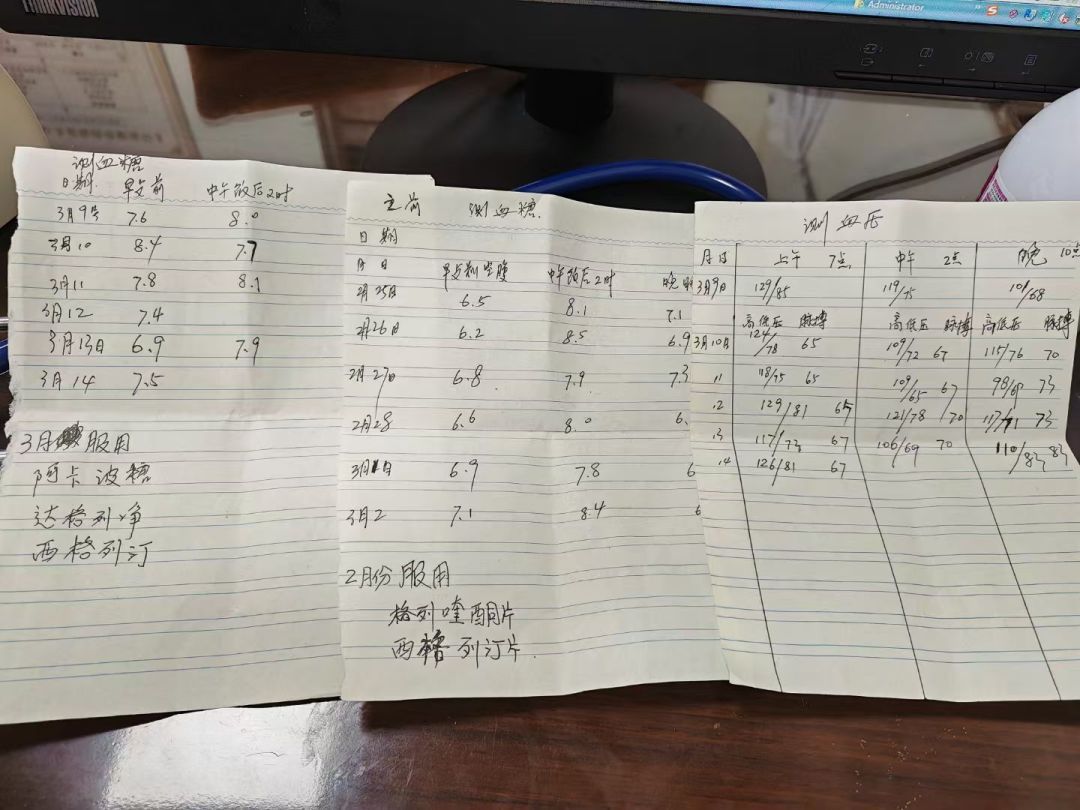 ThinkVision
Administrator
测血糖
日期 早点前 中午饭后2时
3月9号 7.6 8.0
3月10 8.4 7.7
3月11 7.8 8.1
3月12 7.4
3月13日 6.9 7.9
3月14 7.5
3月 服用
阿卡波糖
达格列净
西格列汀
之前 测血糖.
日期
月日 早点前空腹 中午饭后2时 晚
2月25日 6.5 8.1 7.1
2月26日 6.2 8.5 6.9
2月27日 6.8 7.9 7.3
2月28 6.6 8.0 6.
3月1日 6.9 7.8 6
3月2 7.1 8.4 6
2月份服用
格列喹酮片
西格列汀片.
测血压
月日 上午 7点 中午 2点 晚 10点
3月9日 129/85 119/75 101/68
高低压 脉搏 高低压 脉搏 高低压 脉搏
3月10日 124/78 65 109/72 67 115/76 70
11 118/75 65 109/65 67 98/69 73
12 129/81 65 121/78 70 117/71 73
13 117/73 67 106/69 70 110/83 83
14 126/81 67